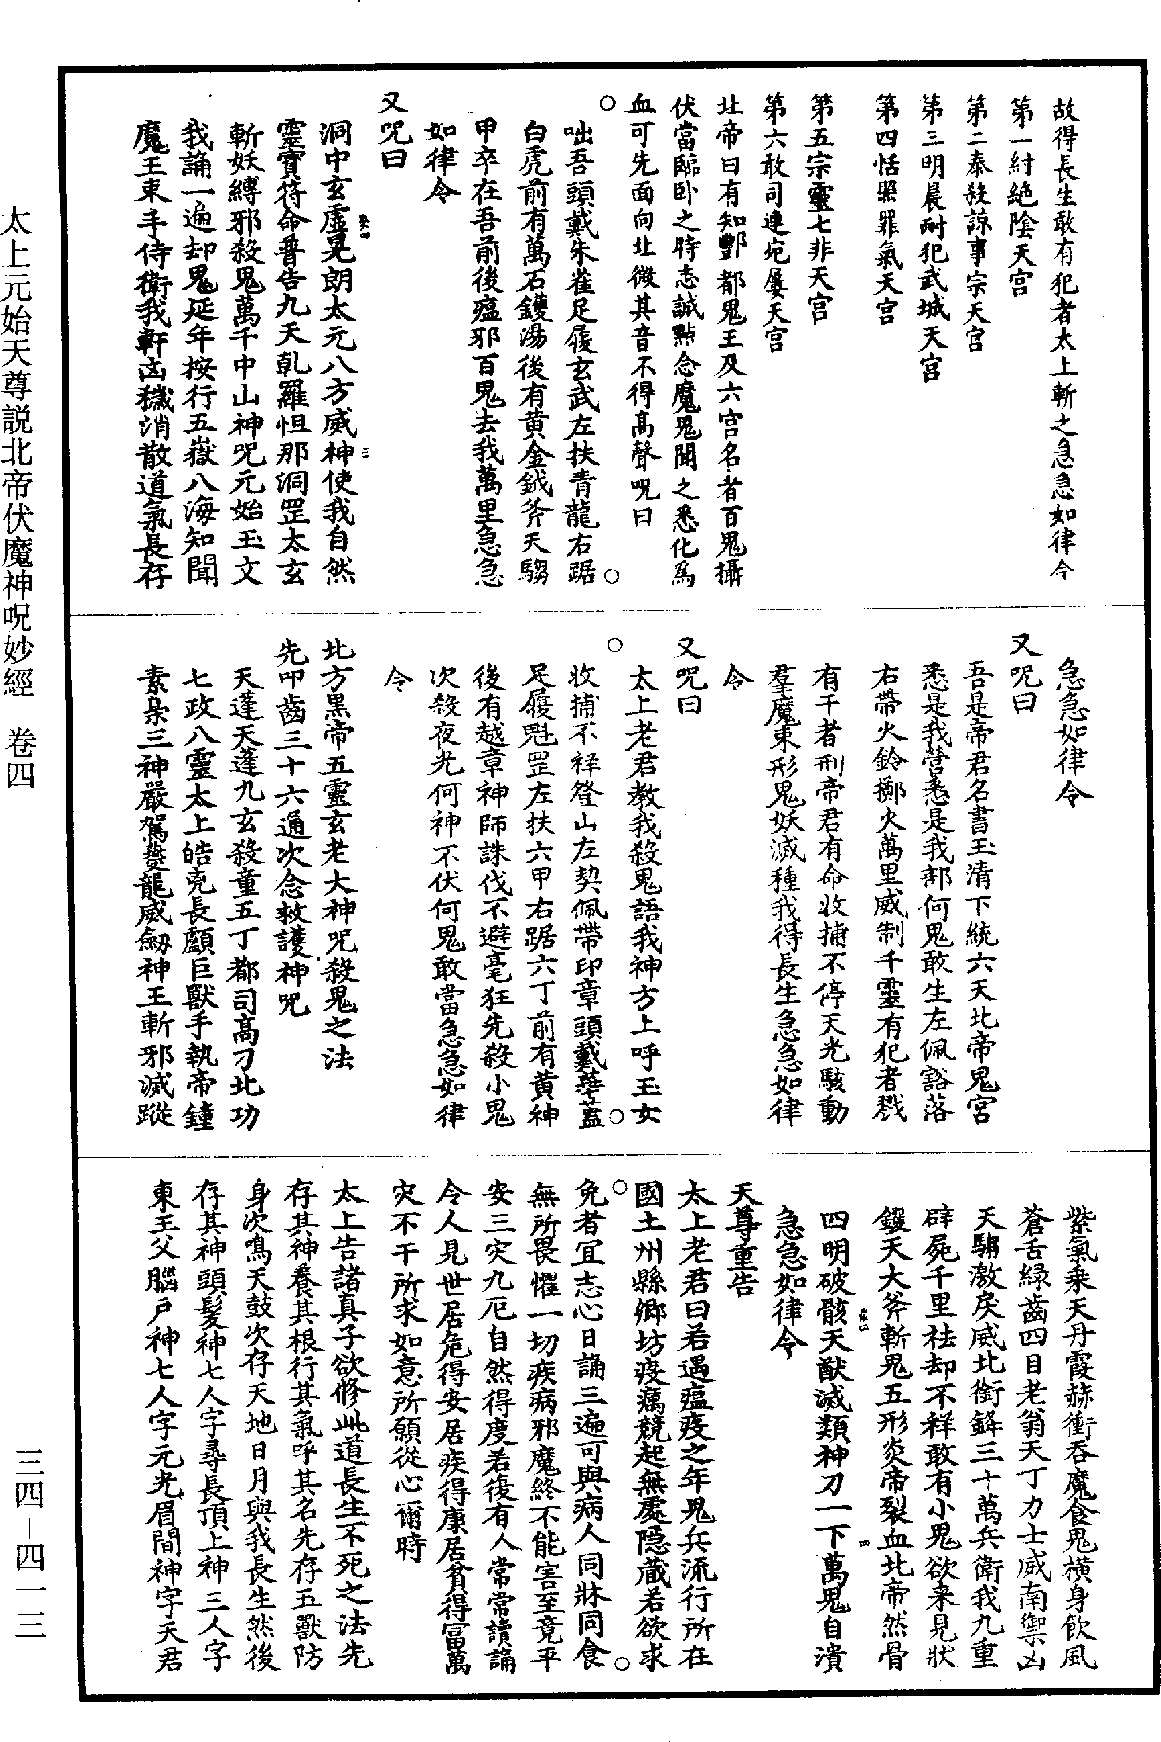 故得長生敢有犯者太上斬之急急如律令
第一紂絶陰天宫
第二泰殺諒事宗天宫
第三明晨耐犯武城天宫
第四恬照罪氣天宫
第五宗靈七非天宫
第六敢司連宛屢天宫
北帝曰有知酆都鬼王及六宫名者百鬼攝
伏當臨卧之時志誠黙念魔鬼聞之悉化為
血可先面向北微其音不得高聲呪曰
咄吾頭戴朱雀足履玄武左扶青龍右踞
白虎前有萬石鑊湯後有黄金鉞斧天騶
甲卒在吾前後瘟邪百鬼去我萬里急急
如律令
又呪曰
洞中玄虚晃朗太元八方威神使我自然
靈寶符命普告九天乹羅怛那洞罡太玄
斬妖縛邪殺鬼萬千中山神呪元始玉文
我誦一遍却鬼延年按行五嶽八海知聞
魔王束手侍衛我軒凶穢消散道氣長存
急急如律令
又呪曰
吾是帝君名書玉清下統六天北帝鬼宮
悉是我營悉是我部何鬼敢生左佩豁落
右帶火鈴擲火萬里威制千靈有犯者戮
有干者刑帝君有命收捕不停天光駭動
羣魔束形鬼妖滅種我得長生急急如律
令
又呪曰
太上老君教我殺鬼語我神方上呼玉女
收捕不祥登山左契佩帶印章頭戴華蓋
足履魁罡左扶六甲右踞六丁前有黄神
後有越章神師誅伐不避毫狂先殺小鬼
次殺夜光何神不伏何鬼敢當急急如律
令
北方黑帝五靈玄老大神呪殺鬼之法
先叩齒三十六通次念救護神呪
天蓬天蓬九玄殺童五丁都司高刁北功
七政八靈太上皓兇長顱巨獸手執帝鐘
素梟三神嚴駕夔龍威劒神王斬邪滅蹤
紫氣乘天丹霞赫衝吞魔食鬼橫身飲風
蒼舌緑齒四目老翁天丁力士威南禦凶
天騶激戾威北銜鋒三十萬兵衛我九重
辟屍千里祛却不祥敢有小鬼欲來見狀
钁天大斧斬鬼五形炎帝裂血北帝然骨
四明破骸天猷滅類神刀一下萬鬼自潰
急急如律令
天尊重告
太上老君曰若遇瘟疫之年鬼兵流行所在
國土州縣鄉坊疫癘競起無處隱藏若欲求
免者宜志心日誦三遍可與病人同牀同食
無所畏懼一切疾病邪魔終不能害至竟平
安三灾九厄自然得度若復有人常常讀誦
令人見世居危得安居疾得康居貧得富萬
灾不干所求如意所願從心爾時
太上告諸真子欲修此道長生不死之法先
存其神養其根行其氣呼其名先存五獸防
身次鳴天鼓次存天地日月與我長生然後
存其神頭髮神七人字尋長頂上神三人字
東王父腦户神七人字元光眉間神字天君
太上元始天尊説北帝伏魔神呪妙經　卷四
三四—四一三